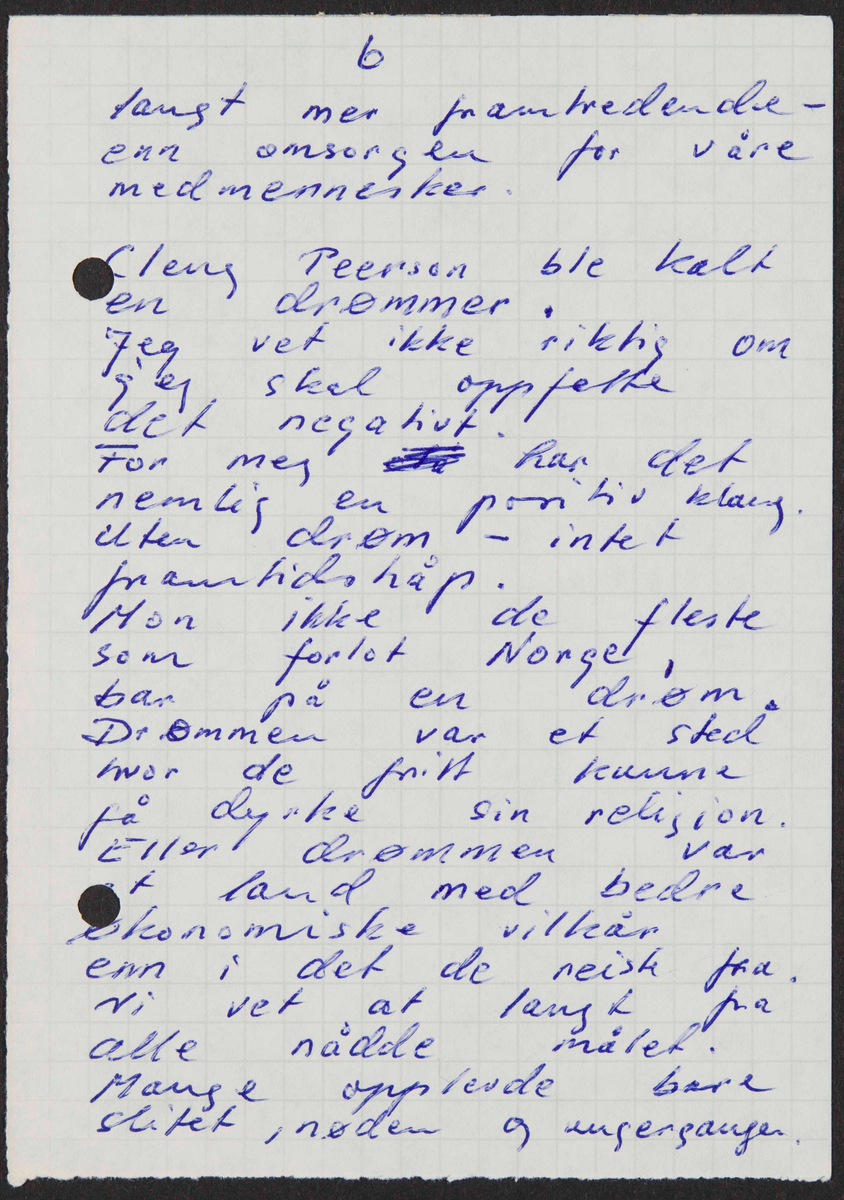 6
langt mer framtredende -
enn omsorgen for våre
medmennesker.
Cleng Peerson ble kalt
en drømmer.
Jeg vet ikke riktig om
jeg skal oppfatte
det negativt.
For meg har det
nemlig en positiv klang.
Uten drøm - intet
framtidshåp.
Mon ikke de fleste
som forlot Norge,
bar på en drøm.
Drømmen var et sted
hvor de fritt kunne
få dyrke sin religion.
Eller drømmen var
et land med bedre
økonomiske vilkår
enn i det de reiste fra.
Vi vet at langt fra
alle nådde målet.
Mange opplevde bare
slitet, nøden og